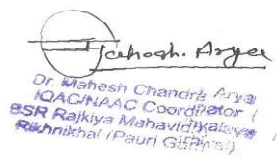 Dr. Mahesh Chandra Arya
IQAC/NAAC Coordinator
BSR Rajkiya Mahavidyalaya
Rikhnikhal (Pauri Garhwal)